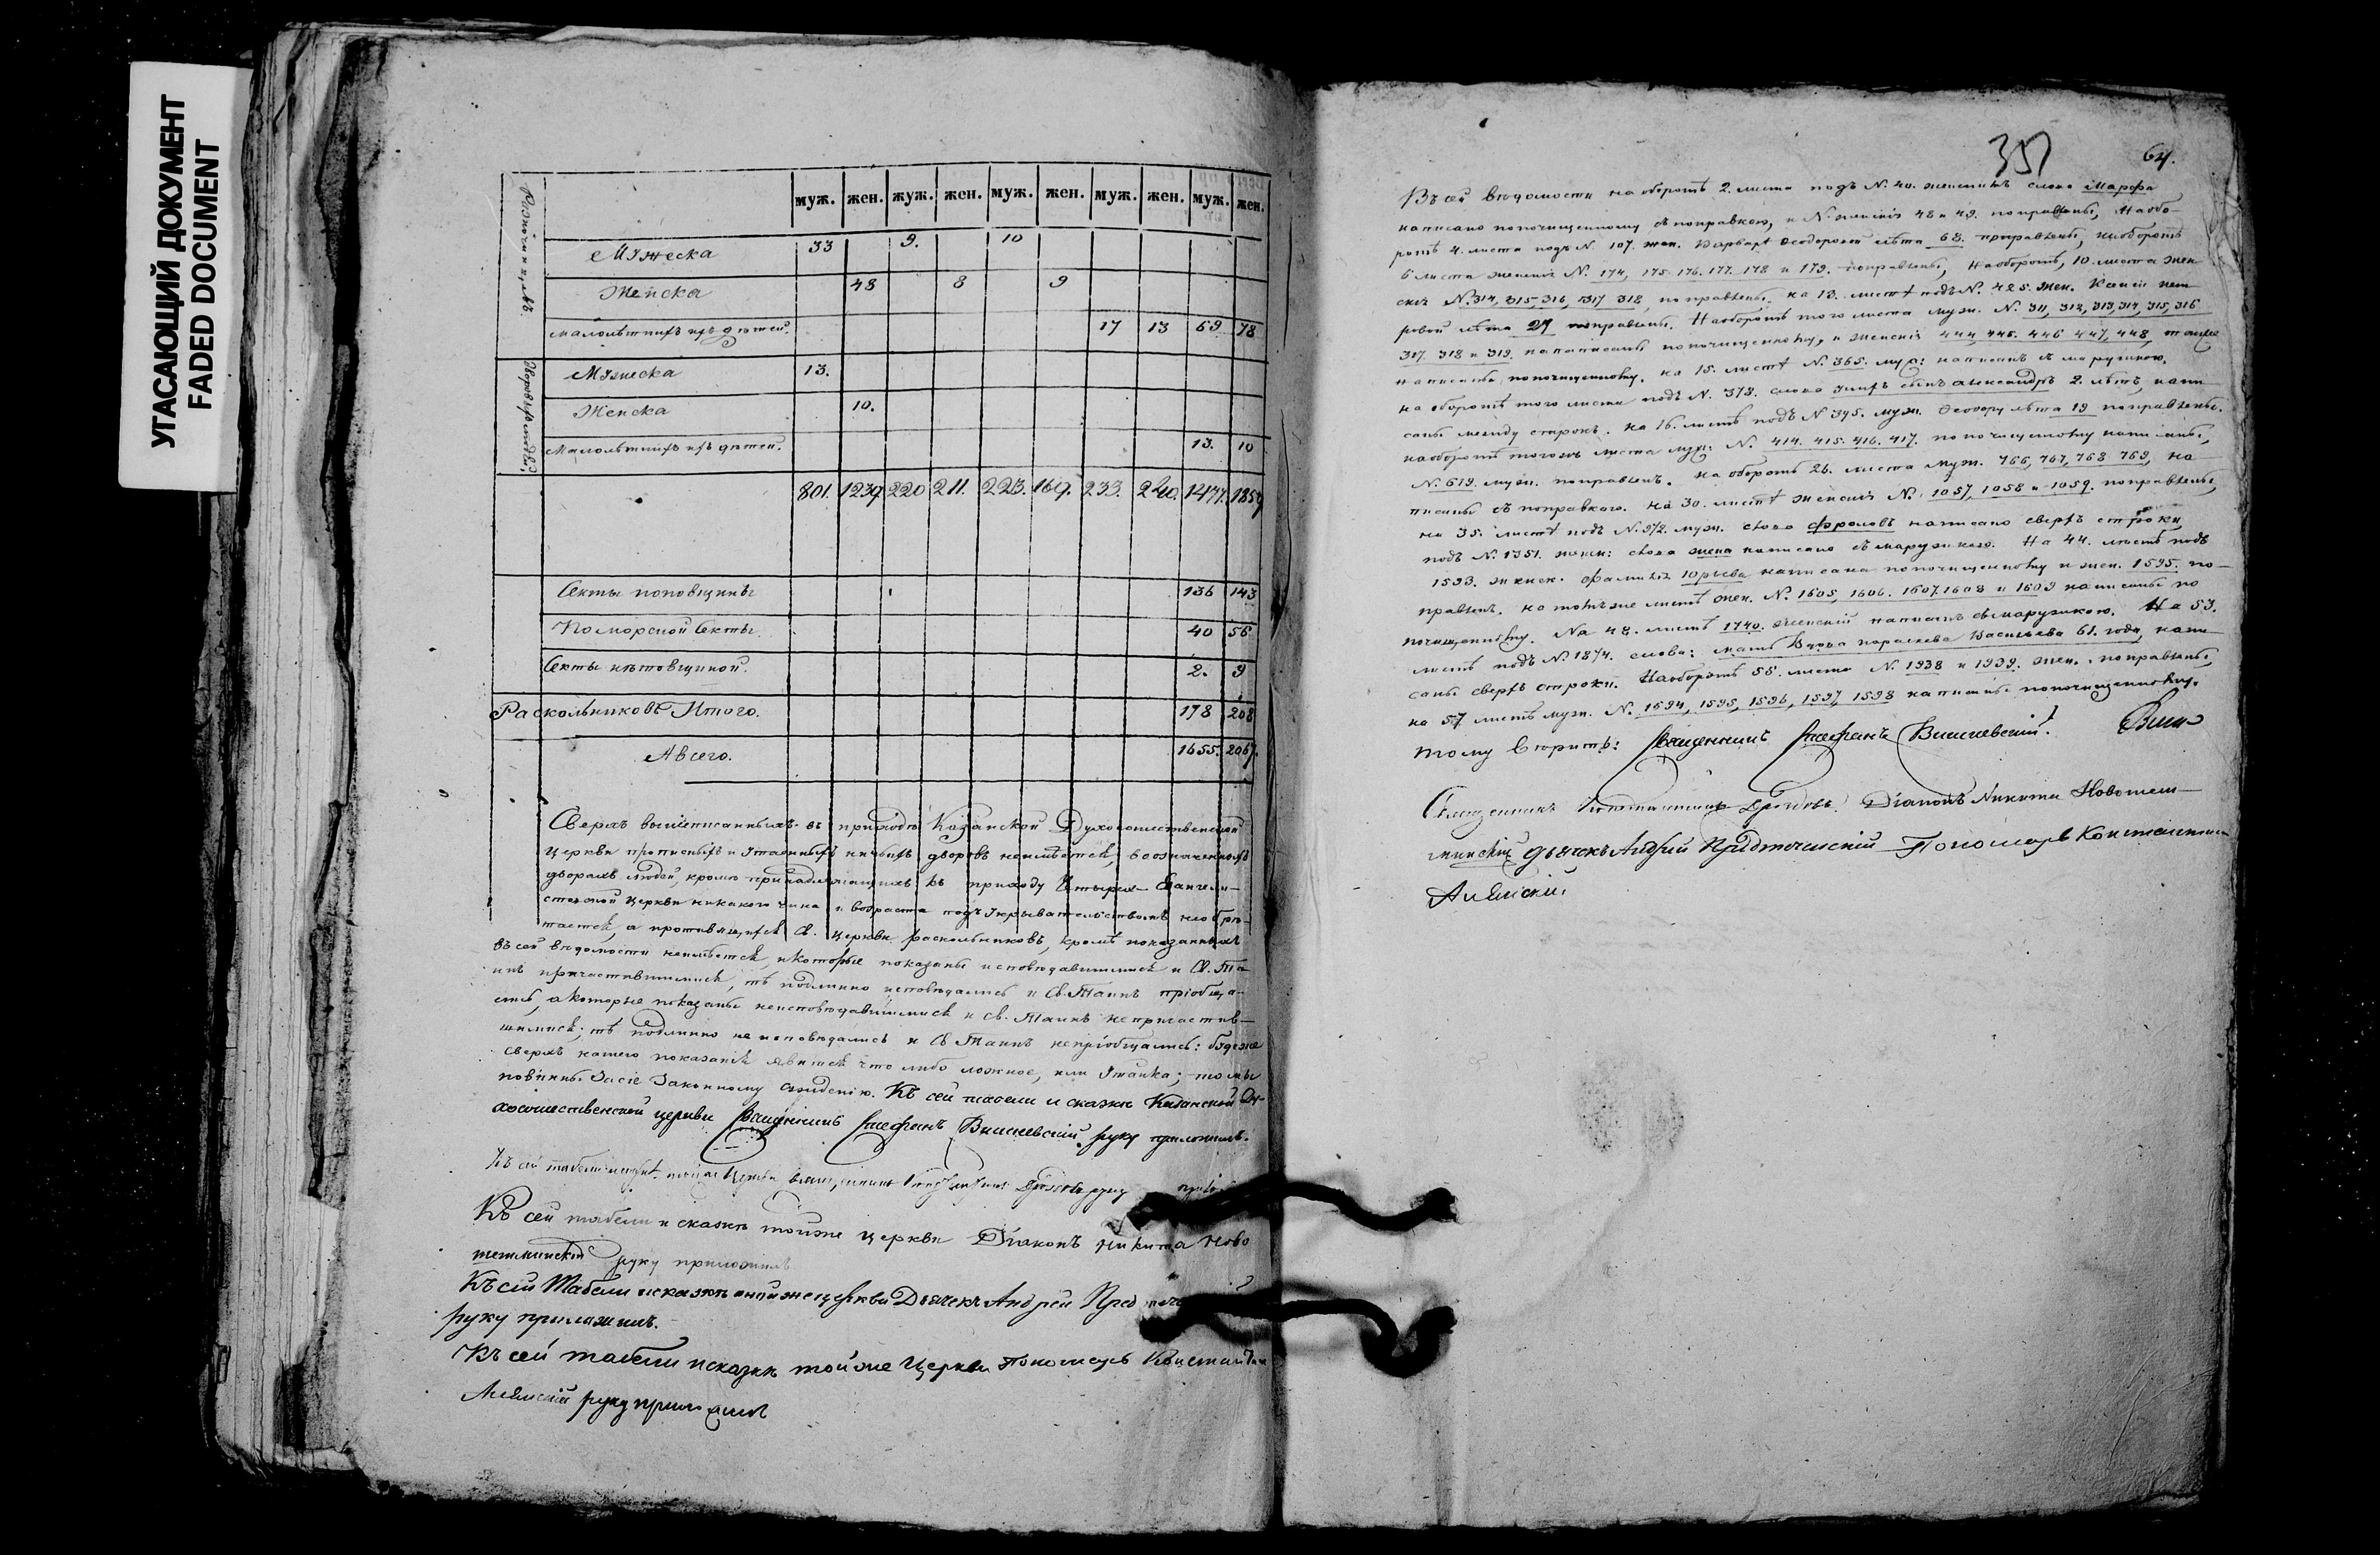 УГАСАЮЩИЙ ДОКУМЕНТ
FADED DOCUMENT
муж. жен. муж. жен. муж. жен. муж. жен. муж. жен.
Мужеска 33 9. 10
Женска 48 8 9
малолѣтныхъ ихъ дѣтей. 17 13 69 78
Мужеска 13.
Женска 10.
Малолѣтныхъ ихъ дѣтей. 13. 10
801. 1239 220 211. 223. 169. 233. 240. 1477. 1859
Секты поповщины 136 143
Поморской Секты. 40 56
Секты нѣтовщиной. 2. 9
Раскольниковъ Итого. 178 208
А всего. 1655. 2067.
Сверхъ вышеписанныхъ въ приходѣ Казанской Духосошественской
церкви прописныхъ и утаенныхъ никакихъ дворовъ неимѣется, в означенныхъ
дворахъ людей, кромѣ принадлежащихъ къ приходу Четырех-Евангели-
стовской церкви никакого чина и возраста подъ укрывательствомъ необрѣ-
тается, а противящихся Св. церкви раскольниковъ, кромѣ показанныхъ
въ сей вѣдомости неимѣется, и которые показаны исповѣдавшимися и Св. Та-
инъ причастившимися, тѣ подлинно исповѣдались и Св. Таинъ пріобща-
лись, а которые показаны неисповѣдавшимися и св. Таинъ непричастив-
шимися; тѣ подлинно не исповѣдались и Св. Таинъ непріобщались: буде же
сверхъ нашего показанія явится что либо ложное, или утайка; то мы
повинны за сіе законному сужденію. Къ сей табели и сказкѣ Казанской Ду-
хосошественской церкви священникъ Стефанъ Вишневскій руку приложилъ.
Къ сей табели церкви священникъ Дроздовъ руку
Къ сей табели и сказкѣ тойже церкви Діаконъ Никита Ново
тешминскій руку приложилъ
Къ сей Табели и сказкѣ оной же церкви Дьячекъ Андрей
руку приложилъ.
Къ сей табели и сказкѣ тойже Церкви Пономарь Константинъ
руку приложилъ
351 64.
Въ сей вѣдомости на оборотѣ 2. листа подъ N. 40. женскимъ слово Марфа
написано поподчищенному съ поправкою, и N. женскія 48 и 49. поправлены, На обо-
ротѣ 4. листа подъ N. 107. жен. Варвары Ѳеодоровой лѣта 63. поправлены, на оборотѣ
6 листа женскія N. 174, 175. 176. 177. 178 и 179. поправлены, На оборотѣ, 10. листа жен
скія N. 314, 315, 316, 317 318, поправлены. на 13. листѣ подъ N. 425. жен. Ксеніи пет
ровой лѣта 29 поправлены. На оборотѣ того листа муж. N. 311, 312, 313, 314, 315, 316
317. 318 и 319. написаны поподчищенному, и женскія 444, 445. 446 447, 448,
написаны поподчищенному. на 15. листѣ N. 365. муж: написанъ съ марушкою.
на оборотѣ того листа подъ N. 378. слова у нихъ сынъ александръ 2. лѣтъ, напи-
саны между строкъ. на 16. листѣ подъ N 395. муж. Ѳеодору лѣта 19 поправлены.
на оборотѣ тогожъ листа муж: N. 414. 415. 416. 417. поподчищенному написаны,
N. 619. муж. поправленъ. на оборотѣ 26. листа муж. 766, 767, 768 769, на-
писаны съ поправкою. на 30. листѣ женскія N. 1057, 1058 и 1059. поправлены,
на 35. листѣ подъ N. 972. муж. слово Фроловъ написано сверхъ строки,
подъ N. 1351. женск: слово жена написано съ марушкою. На 44. листѣ подъ
1593. женск. фамилія Юрьева написана поподчищенному и жен. 1595. по-
правленъ. на томъ же листѣ жен. N. 1605, 1606. 1607. 1608 и 1609 написаны по
почищенному. На 48. листѣ 1740. женскій написанъ съ марушкою. На 53.
листѣ подъ N. 1874. слова: мать вдова параскева Васильева 61. года, напи-
саны сверхъ строки. На оборотѣ 55. листа N. 1938 и 1939. жен. поправлены,
на 57 листѣ муж. N. 1594, 1595, 1596, 1597, 1598 написаны поподчищенному.
тому вѣрить: священникъ Стефанъ Вишневскій.
Священникъ Дроздовъ. Діаконъ Никита Новотеш-
минскій дьячекъ Андрей Предтеченскій Пономарь Константинъ